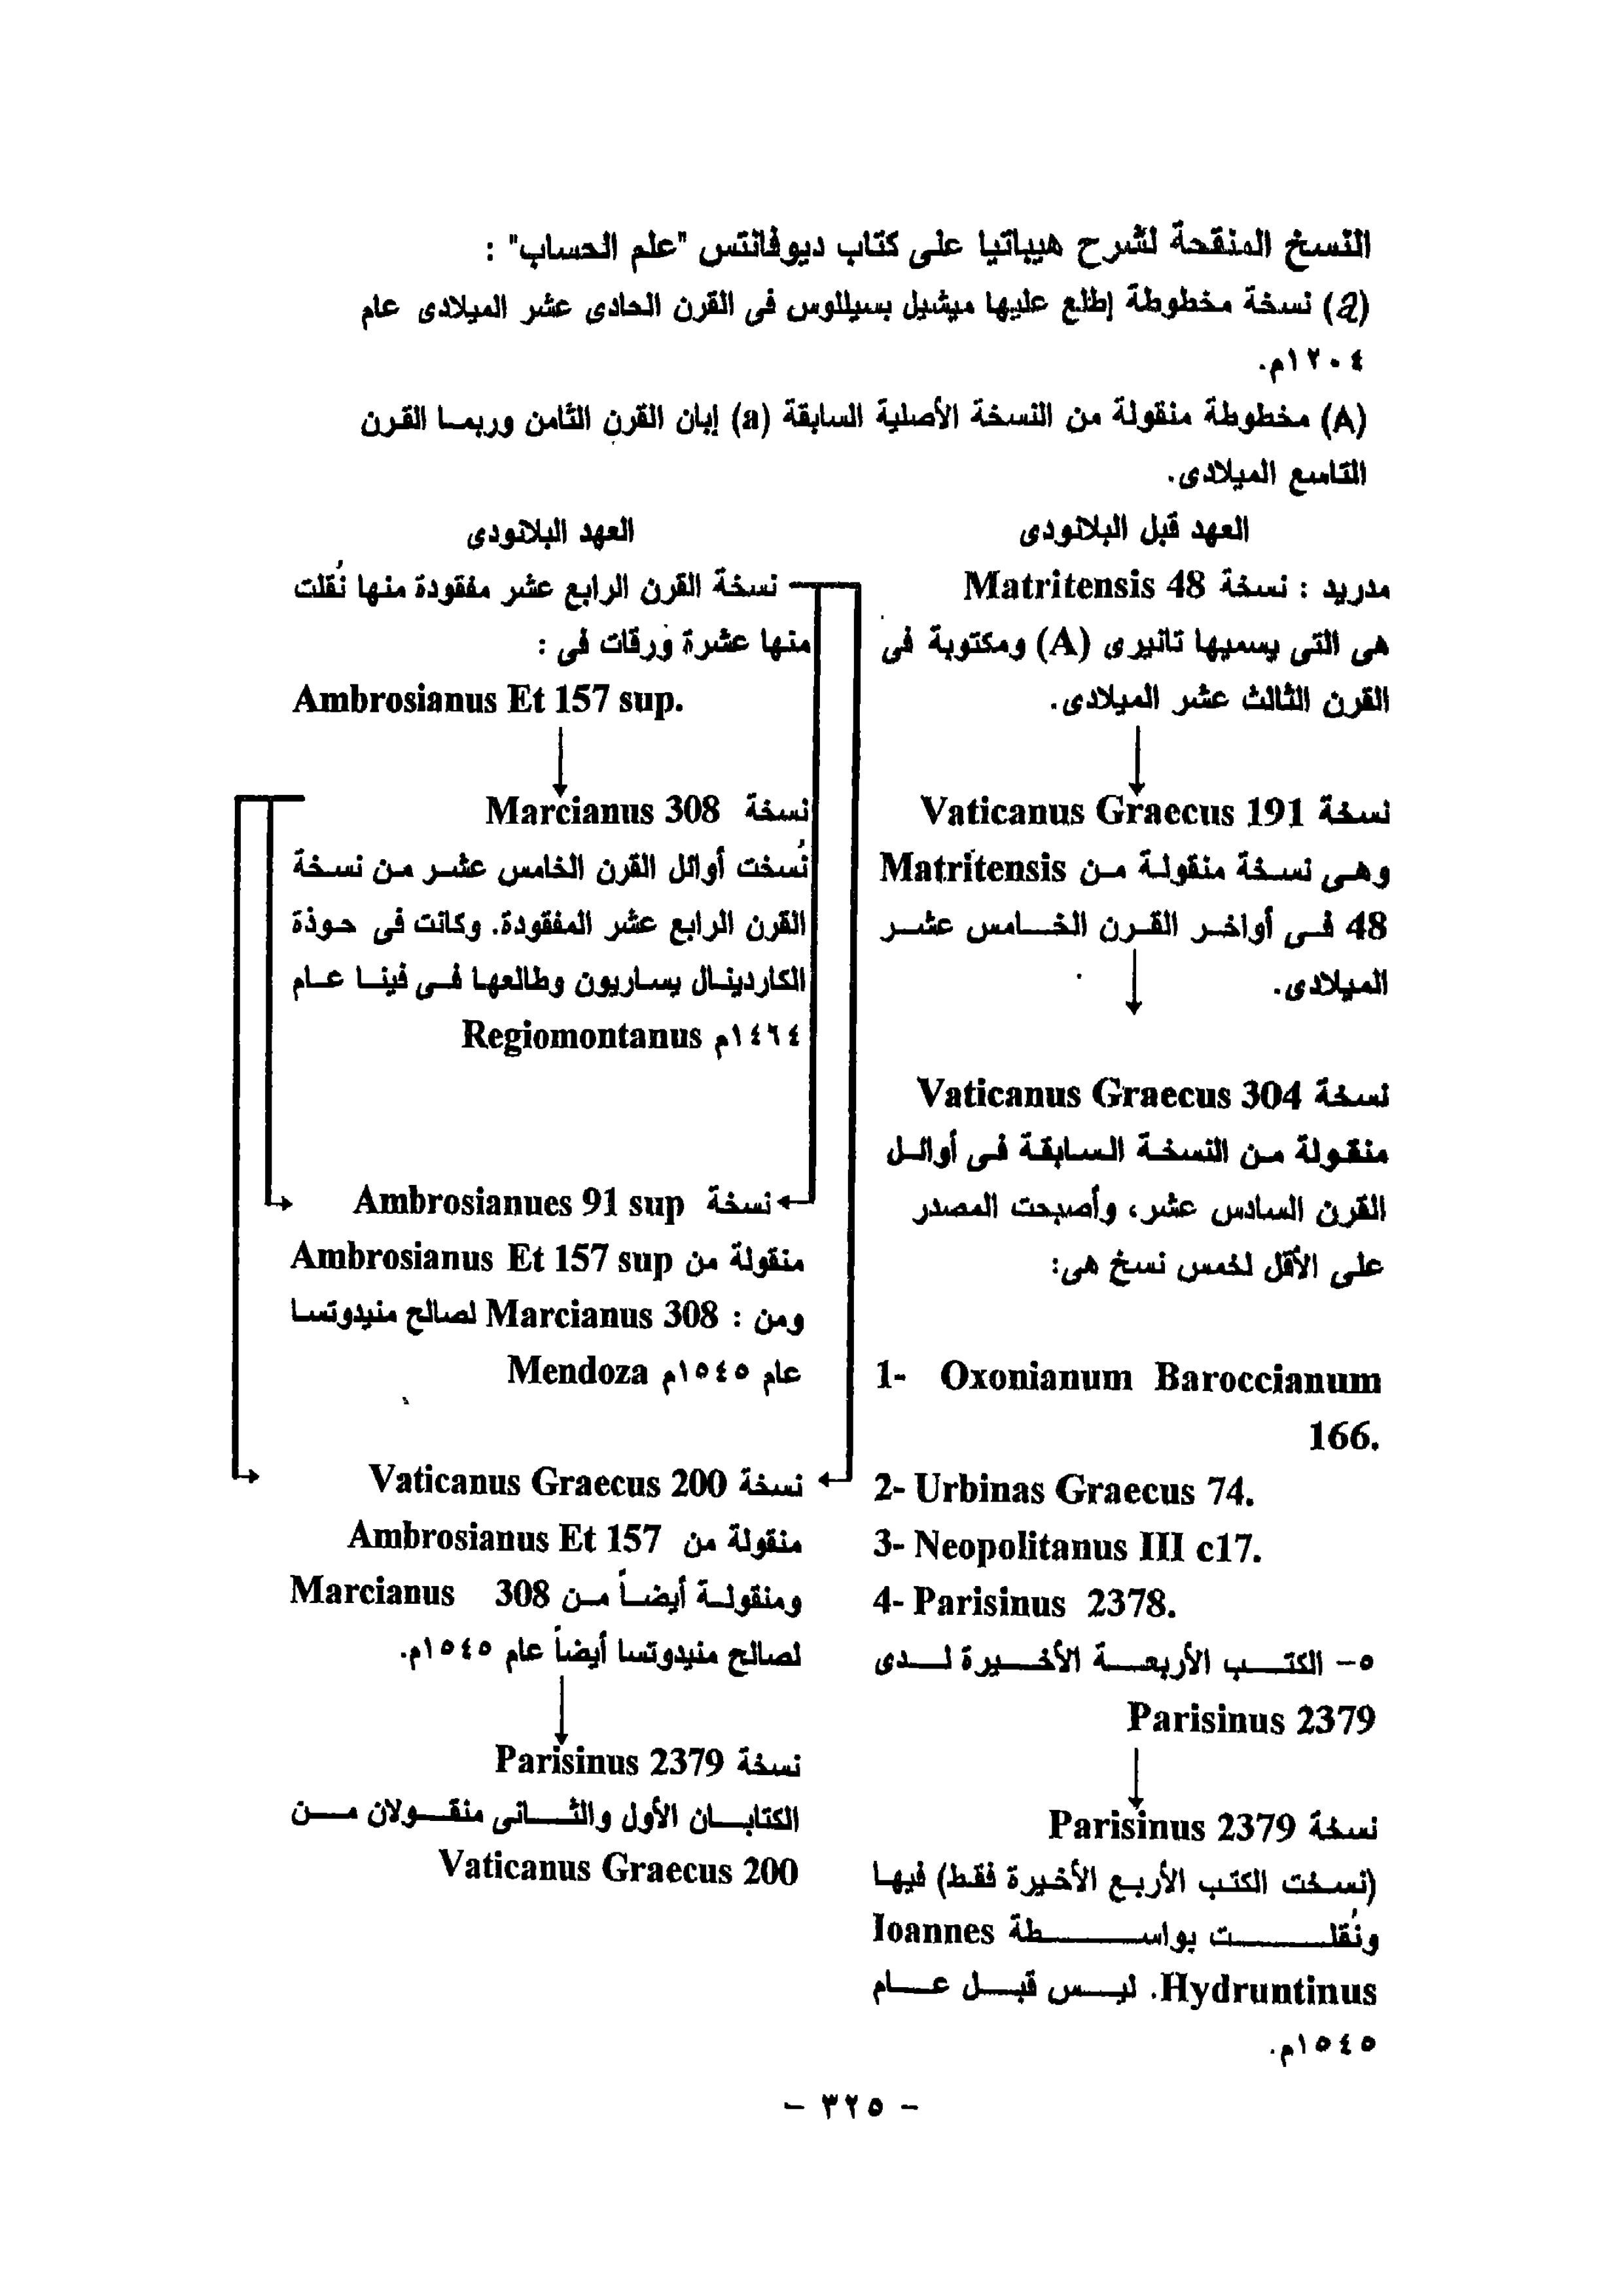 النسخ المنقحة لشرح هيباتيا على كتاب ديوفانتس "علم الحساب" :
(a) نسخة مخطوطة إطلع عليها ميشيل بسيللوس فى القرن الحادى عشر الميلادى عام
١٢٠٤م.
(A) مخطوطة منقولة من النسخة الأصلية السابقة (a) إبان القرن الثامن وربما القرن
التاسع الميلادى.
العهد قبل البلانودى
مدريد : نسخة Matritensis 48
هى التى يسميها تانيرى (A) ومكتوبة فى
القرن الثالث عشر الميلادى.
نسخة Vaticanus Graecus 191
وهى نسخة منقولة من Matritensis
48 فى أواخر القرن الخامس عشر
الميلادى.
نسخة Vaticanus Graecus 304
منقولة من النسخة السابقة فى أوائل
القرن السادس عشر، وأصبحت المصدر
على الأقل لخمس نسخ هى:
1- Oxonianum Baroccianum
166.
2- Urbinas Graecus 74.
3- Neopolitanus III c17.
4- Parisinus 2378.
٥- الكتب الأربعة الأخيرة لدى
Parisinus 2379
نسخة Parisinus 2379
(نسخت الكتب الأربع الأخيرة فقط) فيها
ونُقلت بواسطة Ioannes
Hydruntinus. ليس قبل عام
١٥٤٥م.
العهد البلانودى
نسخة القرن الرابع عشر مفقودة منها نُقلت
منها عشرة ورقات فى :
Ambrosianus Et 157 sup.
نسخة Marcianus 308
نُسخت أوائل القرن الخامس عشر من نسخة
القرن الرابع عشر المفقودة. وكانت فى حوذة
الكاردينال بساريون وطالعها فى فينا عام
١٤٦٤م Regiomontanus
نسخة Ambrosianues 91 sup
منقولة من Ambrosianus Et 157 sup
ومن : Marcianus 308 لصالح منيدوتسا
عام ١٥٤٥م Mendoza
نسخة Vaticanus Graecus 200
منقولة من Ambrosianus Et 157
ومنقولة أيضاً من Marcianus 308
لصالح منيدوتسا أيضاً عام ١٥٤٥م.
نسخة Parisinus 2379
الكتابان الأول والثانى منقولان من
Vaticanus Graecus 200
- ٣٢٥ -